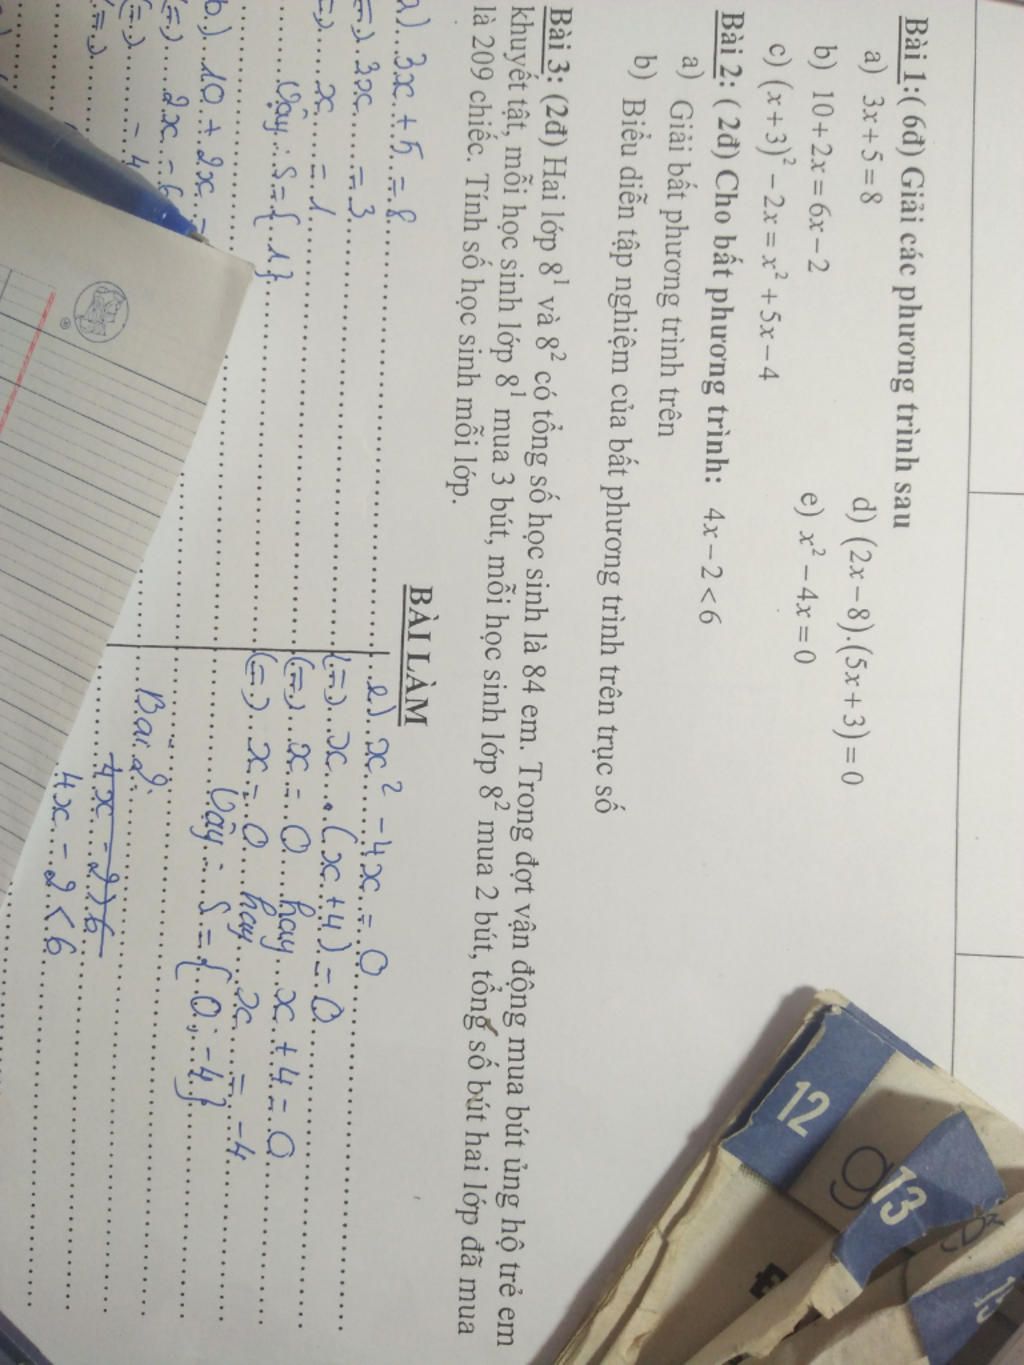 Bài 1:( 6đ) Giải các phương trình sau
a) 3x + 5 = 8
b) 10 + 2x = 6x − 2
c) (x + 3)² − 2x = x² + 5x − 4
d) (2x − 8).(5x + 3) = 0
e) x² − 4x = 0
Bài 2: ( 2đ) Cho bất phương trình: 4x − 2 < 6
a) Giải bất phương trình trên
b) Biểu diễn tập nghiệm của bất phương trình trên trục số
Bài 3: (2đ) Hai lớp 8¹ và 8² có tổng số học sinh là 84 em. Trong đợt vận động mua bút ủng hộ trẻ em
khuyết tật, mỗi học sinh lớp 8¹ mua 3 bút, mỗi học sinh lớp 8² mua 2 bút, tổng số bút hai lớp đã mua
là 209 chiếc. Tính số học sinh mỗi lớp.
BÀI LÀM
a) 3x + 5 = 8
(=) 3x = 3
(=) x = 1
Vậy: S = { 1 }
b) 10 + 2x =
(=) 2x - 6
(=) - 4
(=)
e) x² - 4x = 0
(=) x . (x + 4) = 0
(=) x = 0 hay x + 4 = 0
(=) x = 0 hay x = -4
Vậy: S = { 0; -4 }
Bài 2:
4x - 2 > 6
4x - 2 < 6
12
13